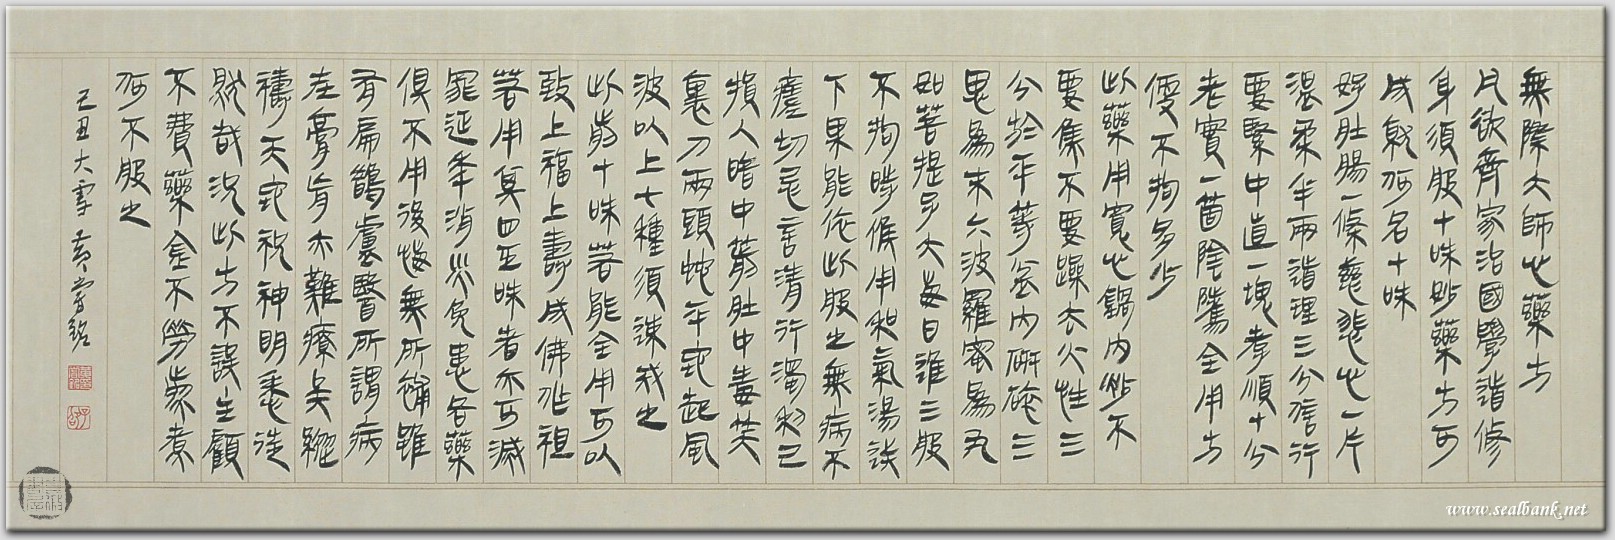 無際大師心藥方
凡欲齊家治國學道修
身須服十味妙藥方可
成就何名十味
好肚腸一條慈悲心一片
溫柔半兩道理三分信行
要緊中直一塊孝順十分
老實一箇陰騭全用方
便不拘多少
此藥用寬心鍋內炒不
要焦不要躁去火性三
分於平等盆內研碎三
思為末六波羅蜜為丸
如菩提子大每日進三服
不拘時候用和氣湯送
下果能依此服之無病不
瘥切忌言清行濁利己
損人暗中箭肚中毒笑
裏刀兩頭蛇平地起風
波以上七種須速戒之
此前十味若能全用可以
致上福上壽成佛作祖
若用其四五味者亦可滅
罪延年消災免患各藥
俱不用後悔無所補雖
有扁鵲盧醫所謂病
在膏肓亦難療矣縱
禱天地祝神明悉徒
然哉況此方不誤主顧
不費藥金不勞煎煮
何不服之
己丑大雪 黃嘗銘
www.sealbank.net